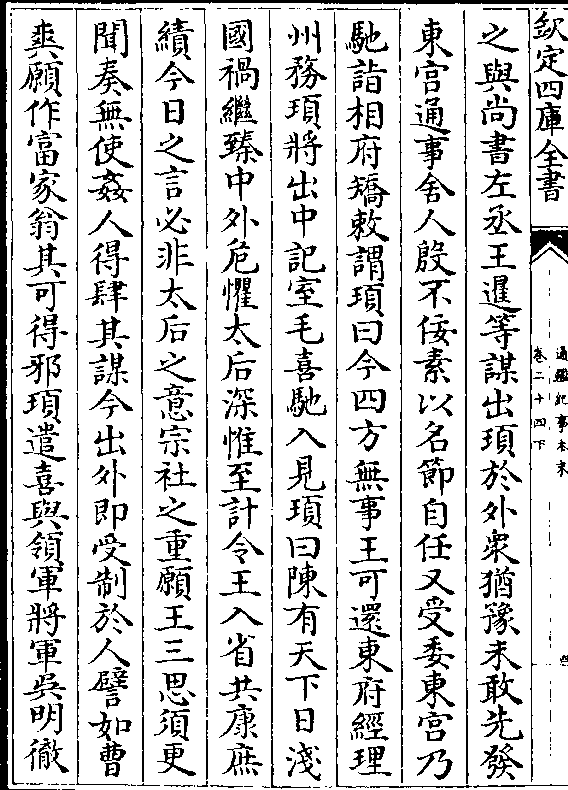 欽定四庫全書
通鑑紀事本末
卷二十四下
之與尚書左丞王暹等謀出頊於外衆猶豫未敢先發
東宫通事舍人殷不佞素以名節自任又受委東宫乃
馳詣相府矯敕謂頊曰今四方無事王可還東府經理
州務頊將出中記室毛喜馳入見頊曰陳有天下日淺
國禍繼臻中外危懼太后深惟至計令王入省共康庶
績今日之言必非太后之意宗社之重願王三思須更
聞奏無使姦人得肆其謀今出外即受制於人譬如曹
爽願作富家翁其可得邪頊遣喜與領軍將軍吳明徹